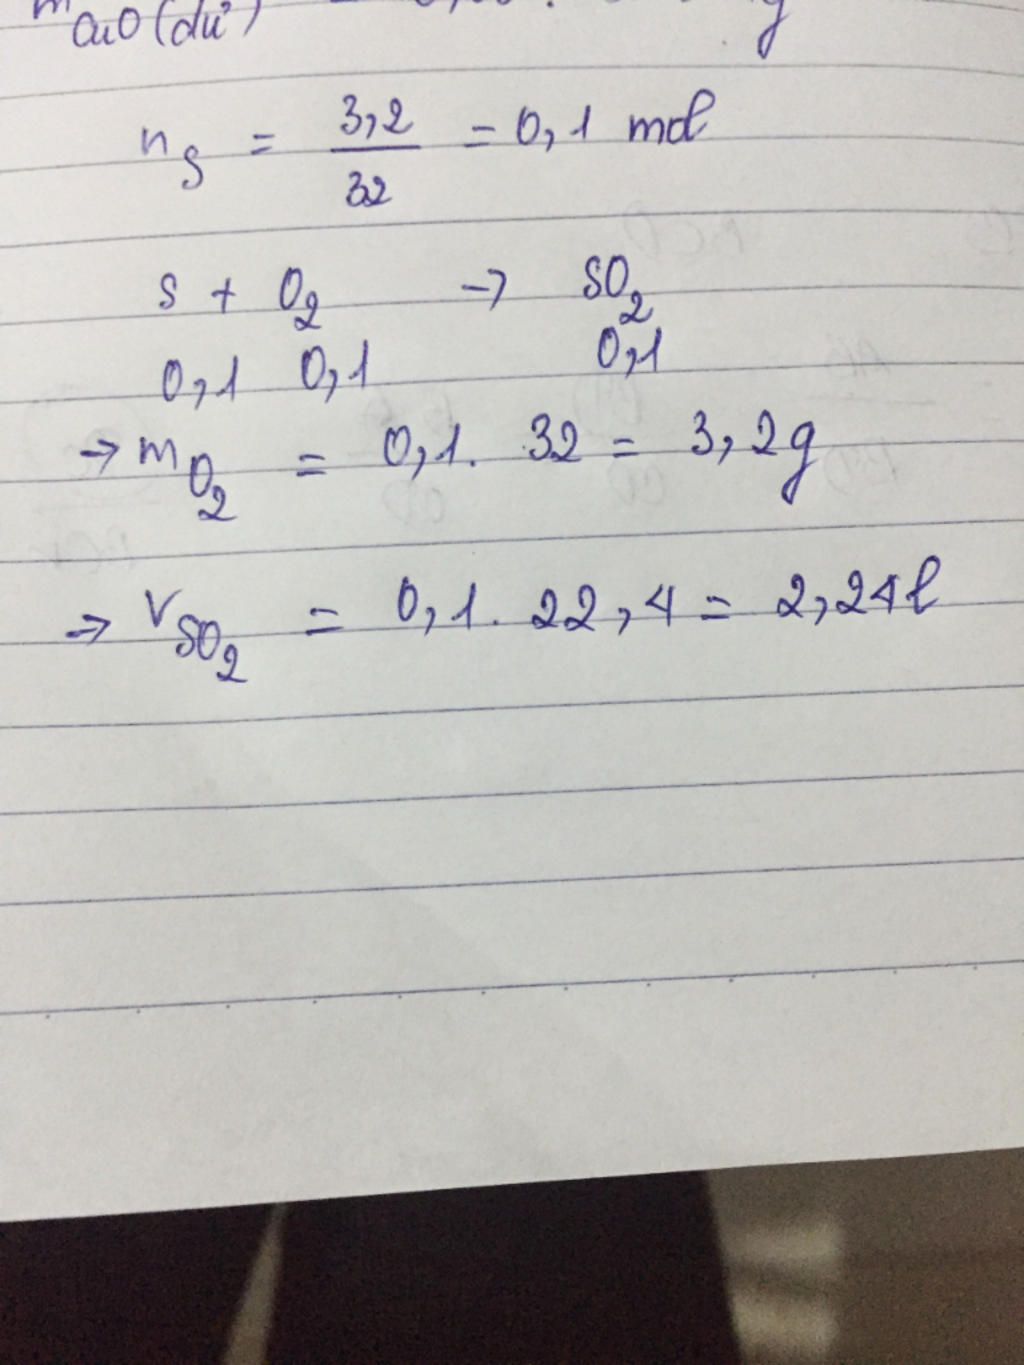 m CuO (dư)
n S = 3,2 / 32 = 0,1 mol
S + O2 → SO2
0,1 0,1 0,1
→ m O2 = 0,1 . 32 = 3,2g
→ V SO2 = 0,1 . 22,4 = 2,24l